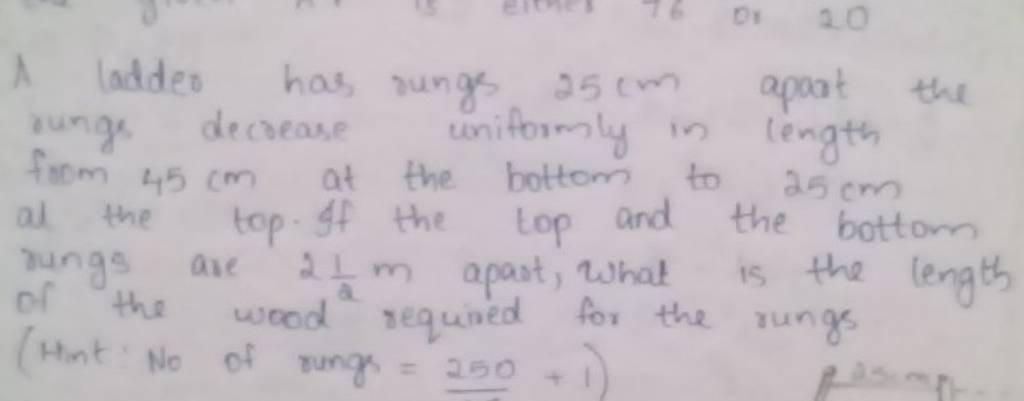 is either 76 or 20
A ladder has rungs 25 cm apart the
rungs decrease uniformly in length
from 45 cm at the bottom to 25 cm
at the top. If the top and the bottom
rungs are 2 1/2 m apart, what is the length
of the wood required for the rungs
(Hint: No of rungs = 250 + 1)